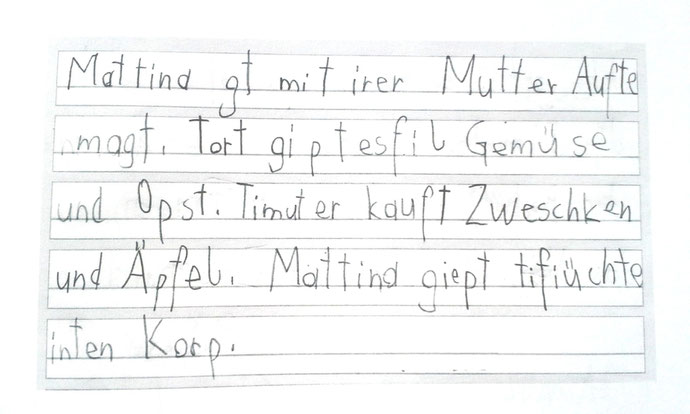 Mattina gt mit irer Mutter Aufte
magt. Tort giptesfil Gemüse
und Opst. Timuter kauft Zweschken
und Äpfel. Mattina giept tifiüchte
inten Korp.